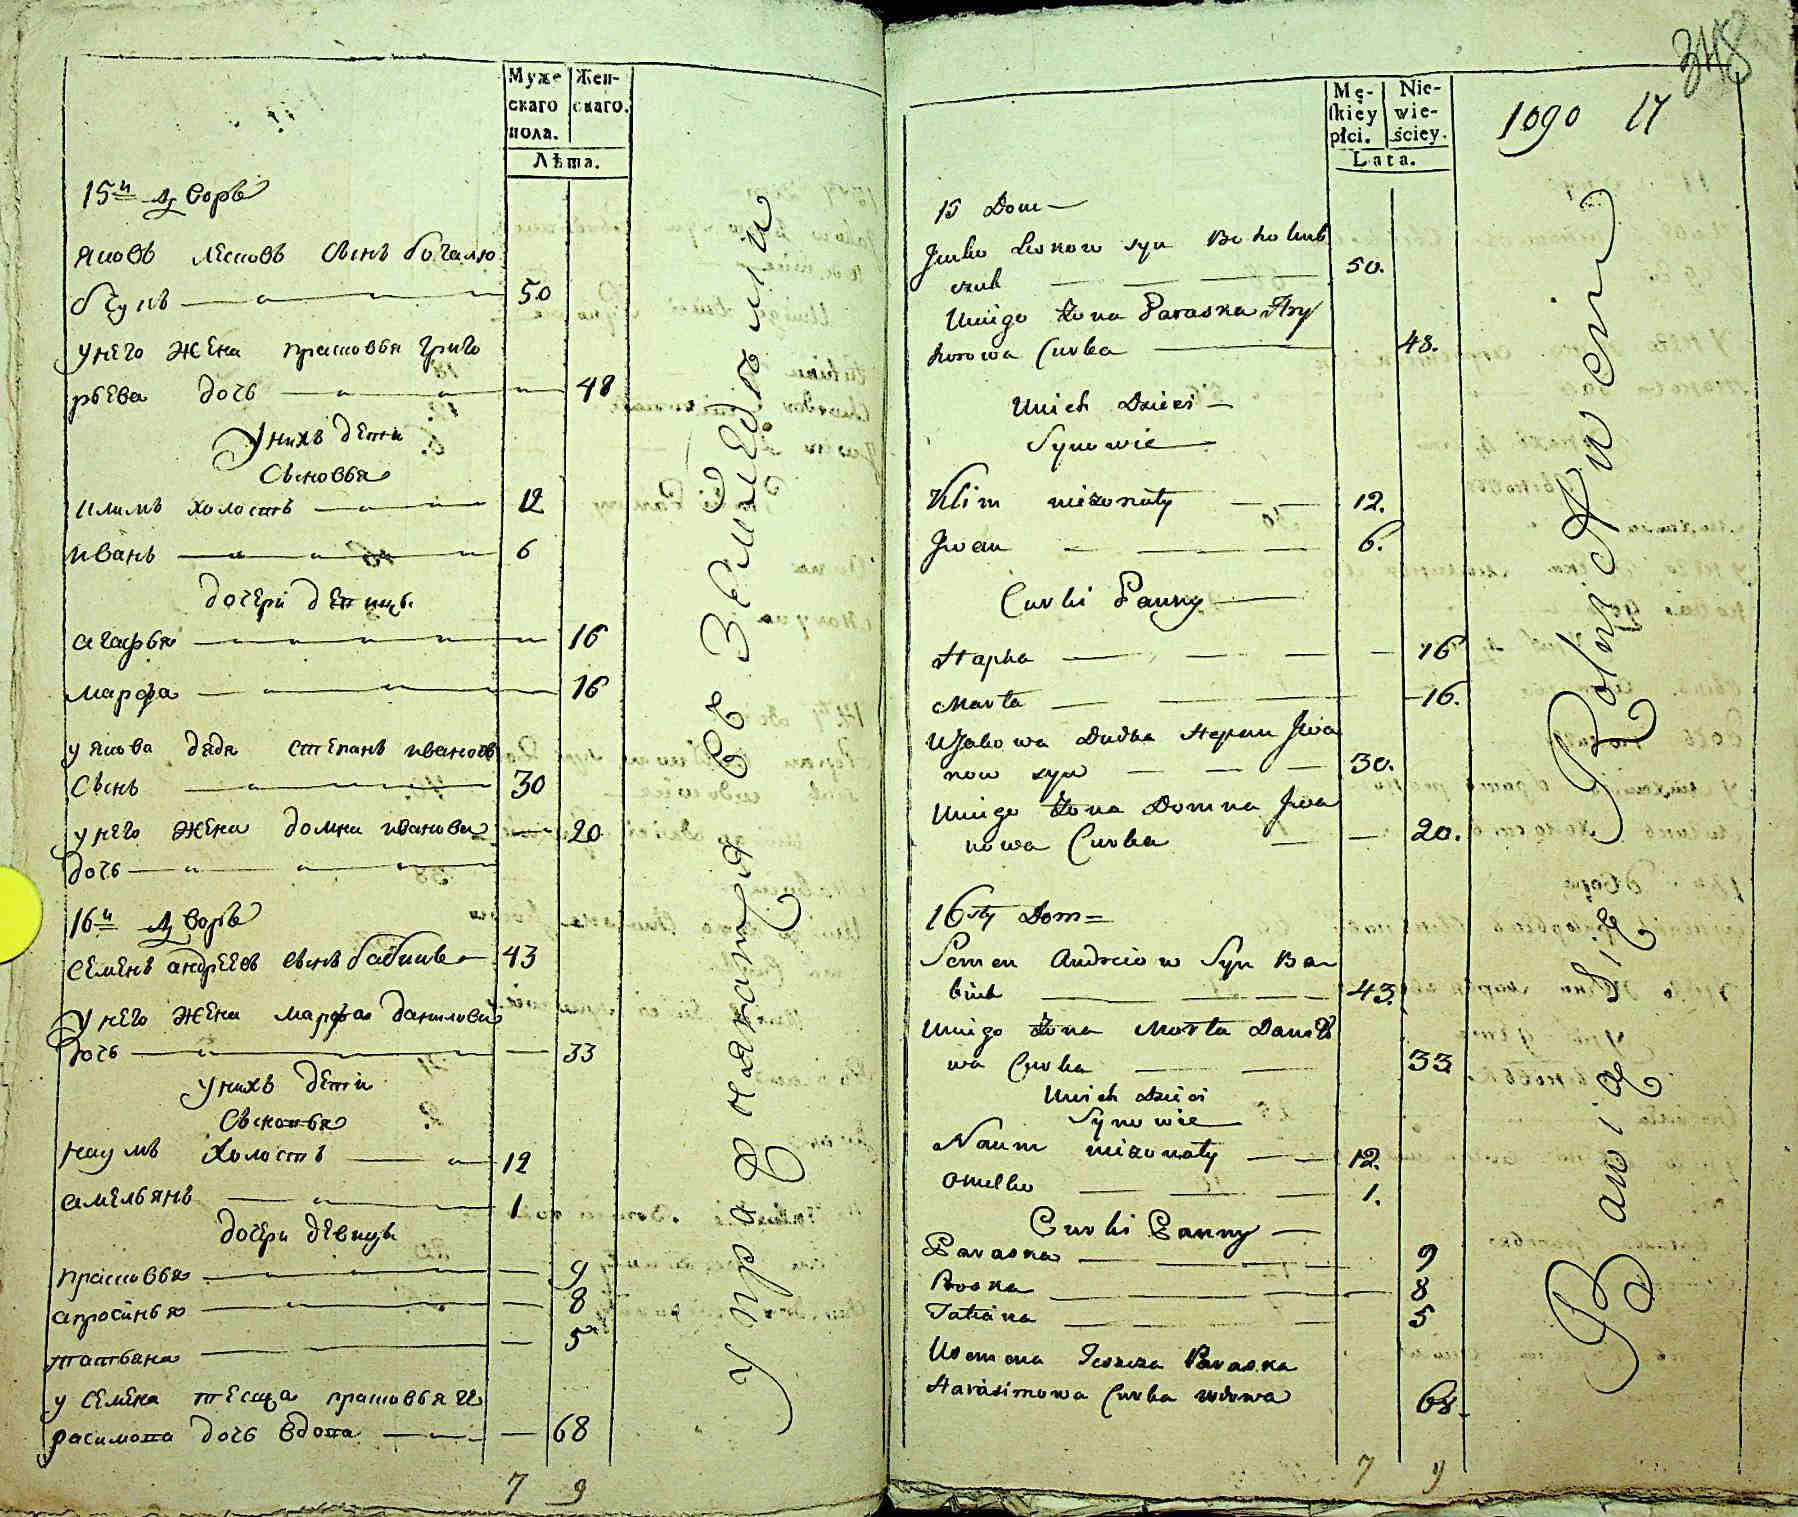 Муже
скаго
пола.
Жен-
скаго.
Лѣта.
15й дворъ
Яковъ Лесковъ сынъ боголю
бчукъ 50
у него жена прасковья григо
рьева дочь 48
у нихъ дети
сыновья
климъ холостъ 12
иванъ 6
дочери девицы
агафья 16
марфа 16
у якова дядя степанъ ивановъ
сынъ 30
у него жена домна иванова 20
дочь
16й дворъ
семенъ андреевъ сынъ бабикъ 43
у него жена марфа данилова
дочь 33
у нихъ дети
сыновья
наумъ холостъ 12
амельянъ 1
дочери девицы
прасковья 9
апросинья 8
татьяна 5
у семена теща прасковья ге
расимова дочь вдова 68
7 9
упраждняются въ земледелии
348
1090 17
Mę-
skiéy
płci.
Nie-
wie-
ściey.
Lata.
15 Dom
Jacko Lwkow syn Boholub
czuk 50.
Uniego Żona Paraska Hry
horowa Curka 48.
Unich Dzieci
Synowie
Klim nieżonaty 12.
Jwan 6.
Curki Panny
Hapka 16
Marta 16.
UJakowa Dudka Stepan Jwa
now syn 30.
Uniego Żona Domna Jwa
nowa Curka 20.
16sty Dom
Semen Andreiow Syn Ba
bick 43.
Uniego Żona Marta Danilo
wa Curka 33
Unich Dzieci
Synowie
Naum nieżonaty 12.
Omelko 1.
Curki Panny
Paraska 9
8
Tatiana 5
Usemena Teszcza Paraska
Harasimowa Curka wdowa 68.
7 9
Bawią Się Rolnictwem